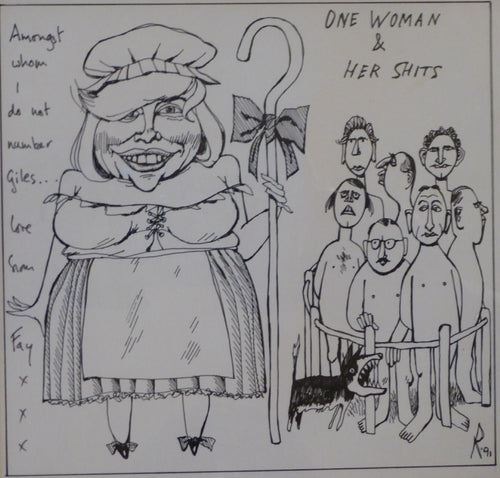 ONE WOMAN
&
HER SHITS
Amongst
whom
I
do not
number
Giles...
love
from
Fay
x
x
x
R 91